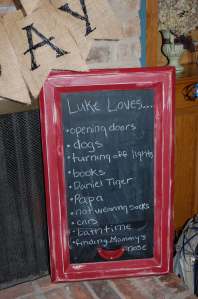 AY
Luke Loves....
•opening doors
•dogs
•turning off lights
•books
•Daniel Tiger
•Papa
•not wearing socks
•cars
•bathtime
•finding Mommy's
nose